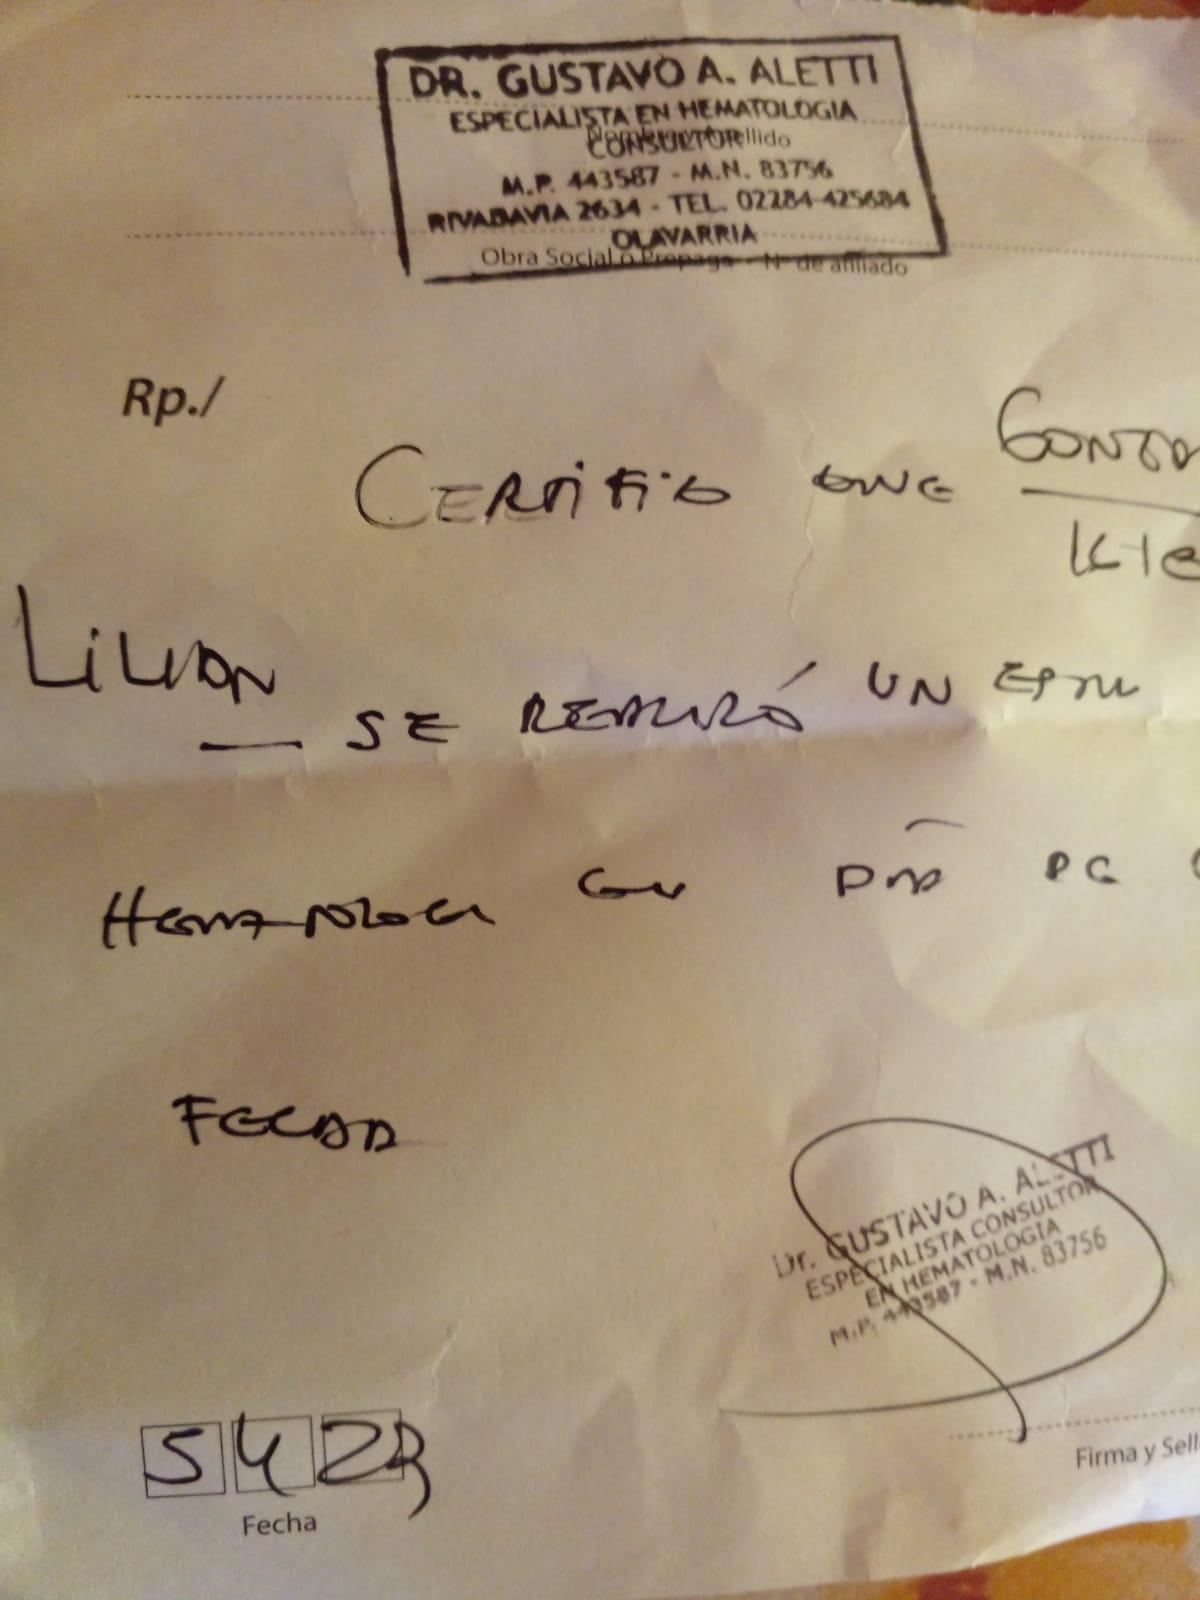 DR. GUSTAVO A. ALETTI
ESPECIALISTA EN HEMATOLOGIA
CONSULTOR
M.P. 443587 - M.N. 83756
RIVADAVIA 2634 - TEL. 02284-425684
OLAVARRIA
Obra Social o Prepaga - Nº de afiliado
Rp./
CERTIFICO QUE
LILIAN
SE REALIZÓ UN
EN DIA DE
FECHA
Dr. GUSTAVO A. ALETTI
ESPECIALISTA CONSULTOR
EN HEMATOLOGIA
M.P. 443587 - M.N. 83756
5 4 23
Fecha
Firma y Sell